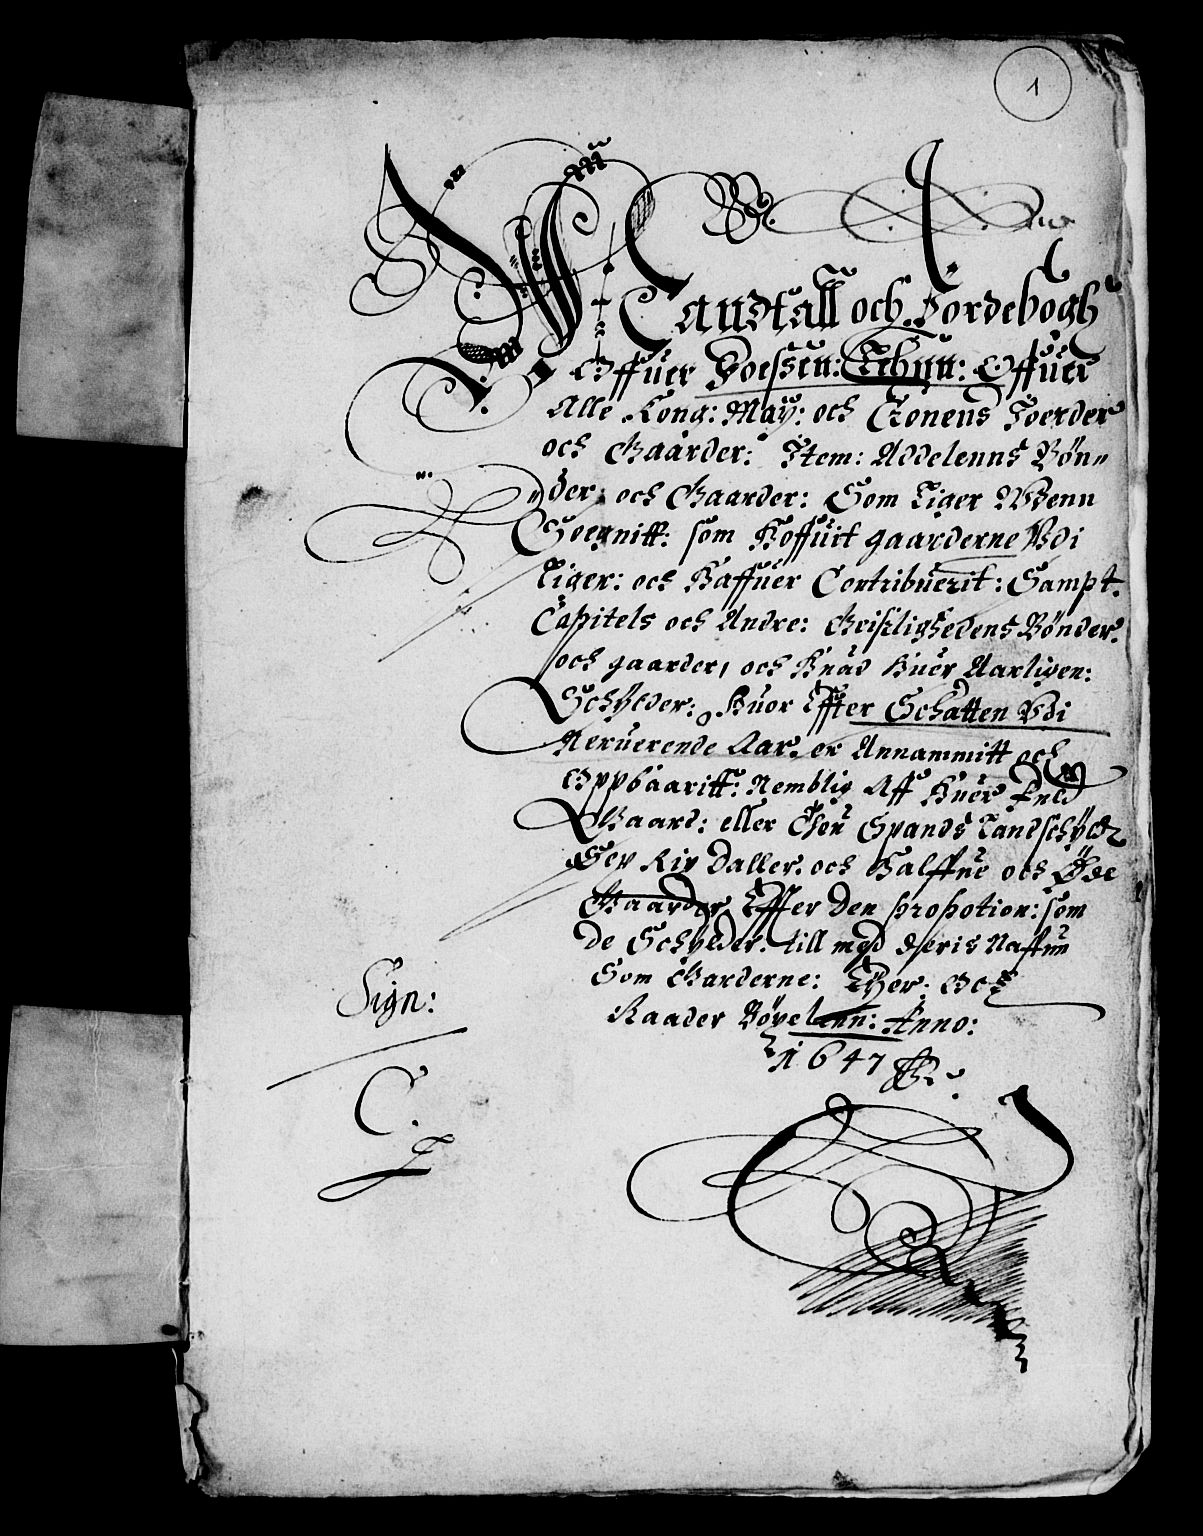 1
Mandtall och Jordebogh
Offuer Foessen: Lehnn: Offuer
Alle Kong: May: och Cronens Joerder
och Gaarder: Item: Addelenns Bøn„
der, och Gaarder: Som Liger Wdenn
Soegnitt: som Hoffuit gaarderne Vdi
Liger: och Haffuer Contribuerit: Sampt.
Capitels och Andre: Geistlighedens Bønder.
och gaarder, och huad huer Aarligen:
Schylder: Huor Effter Schatten Vdi
Neruerende Aar. er Annammitt och
Oppbaaritt: Nemblig Aff huer fuld
Gaard: eller Thou Spands Landschyld
Sex Rix Daller. och Halffue och Øde
Gaarder Effter den propotion: som
de Schylder. till med deris Naffnn
Som Garderne: Ther: Och
Raader Bøxelenn: Anno:
1647
Sign:
C.